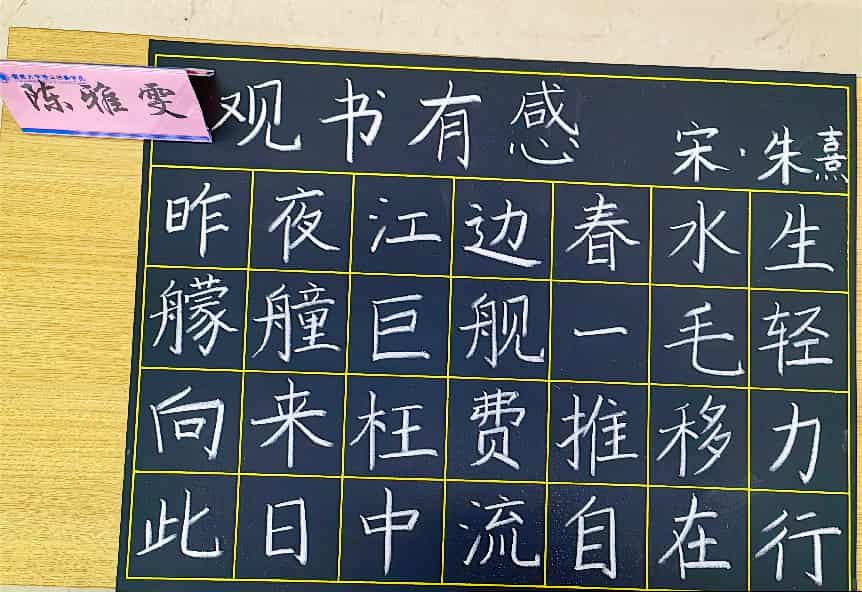 陈雅雯
观书有感
宋·朱熹
昨夜江边春水生
艨艟巨舰一毛轻
向来枉费推移力
此日中流自在行